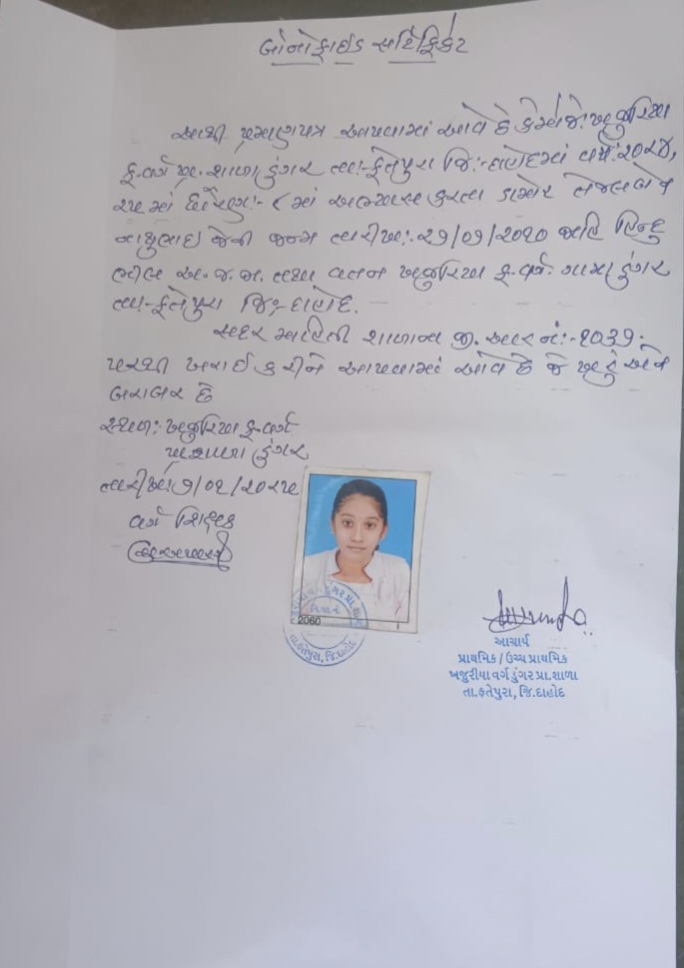 બોનોફાઇડ સર્ટિફિકેટ
આથી પ્રમાણપત્ર આપવામાં આવે છે કે મોજે: ખજુરિયા
ફ.વર્ગ પ્રા.શાળા ડુંગર તા:-ફતેપુરા જિ:-દાહોદમાં વર્ષ:૨૦૨૪,
૨૫ માં ધોરણ:- ૮ માં અભ્યાસ કરતા ડામોર તેજલબેન
નાથુભાઇ જેની જન્મ તારીખ:-૨૧/૦૧/૨૦૧૦ જાતિ હિન્દુ
ભીલ અ.જ.જા. તથા વતન ખજુરિયા ફ.વર્ગ ગામ ડુંગર
તા:-ફતેપુરા જિ:-દાહોદ.
સદર માહિતી શાળાના જી.આર નં:-૧૦૩૧.
પરથી ખરાઈ કરીને આપવામાં આવે છે જે ખરું અને
બરાબર છે
સ્થળ: ખજુરિયા ફ.વર્ગ
પ્રા.શાળા ડુંગર
તારીખ:૭/૦૨/૨૦૨૫
વર્ગ શિક્ષક
2060
તા.ફતેપુરા, જિ.દાહોદ
આચાર્ય
પ્રાથમિક / ઉચ્ચ પ્રાથમિક
ખજુરીયા વર્ગ ડુંગર પ્રા.શાળા
તા.ફતેપુરા, જિ.દાહોદ